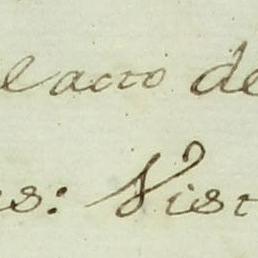 el acto de
es: Vist